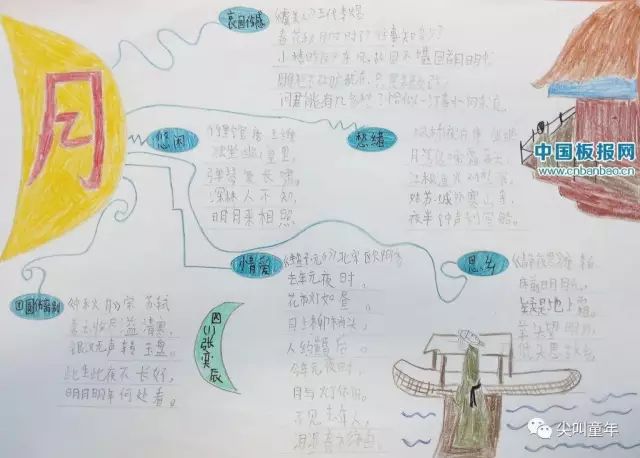 月
哀国伤感
《虞美人》五代李煜
春花秋月何时了往事知多少
小楼昨夜又东风故国不堪回首月明中
问君能有几多愁？恰似一江春水向东流
悠闲
竹里馆 唐 王维
独坐幽篁里，
弹琴复长啸。
深林人不知，
明月来相照。
愁绪
枫桥夜泊
月落乌啼霜满天
江枫渔火对愁眠
姑苏城外寒山寺
夜半钟声到客船。
中国板报网
www.cnbanbao.cn
情爱
北宋 欧阳修
去年元夜时，
花市灯如昼。
月上柳梢头，
人约黄昏后。
今年元夜时，
月与灯依旧。
不见去年人，
思乡
床前明月光，
疑是地上霜。
举头望明月，
低头思故乡
苏轼
暮云收尽溢清寒，
银汉无声转玉盘。
此生此夜不长好，
明月明年何处看。
四川张奕辰
尖叫童年